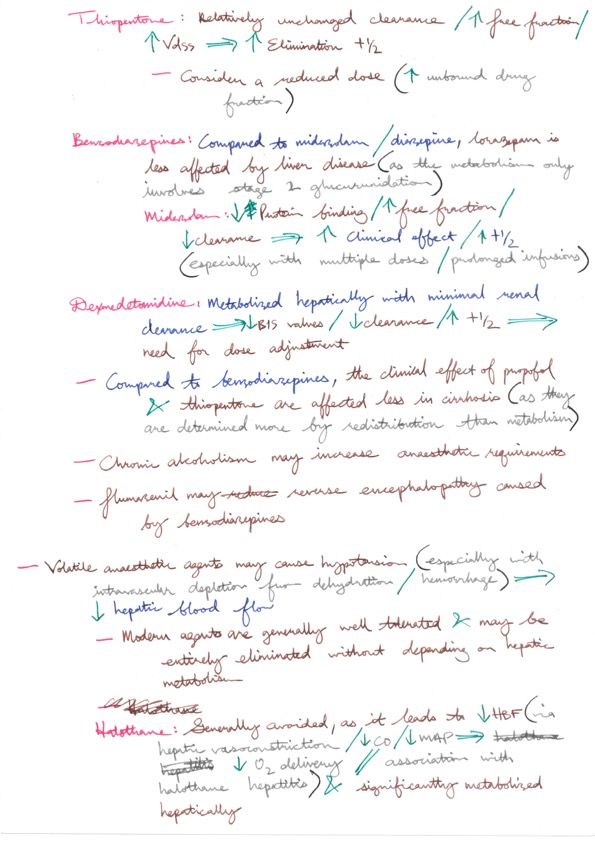 Thiopentone: Relatively unchanged clearance / ↑ free fraction /
↑ Vdss ⇒ ↑ Elimination t1/2
— Consider a reduced dose (↑ unbound drug
fraction)
Benzodiazepines: Compared to midazolam / diazepine, lorazepam is
less affected by liver disease (as the metabolism only
involves stage 2 glucuronidation)
Midazolam: ↓ Protein binding / ↑ free fraction /
↓ clearance ⇒ ↑ Clinical effect / ↑ t1/2
(especially with multiple doses / prolonged infusions)
Dexmedetomidine: Metabolized hepatically with minimal renal
clearance ⇒ ↓ BIS values / ↓ clearance / ↑ t1/2 ⇒
need for dose adjustment
— Compared to benzodiazepines, the clinical effect of propofol
& thiopentone are affected less in cirrhosis (as they
are determined more by redistribution than metabolism)
— Chronic alcoholism may increase anaesthetic requirements
— flumazenil may reduce reverse encephalopathy caused
by benzodiazepines
— Volatile anaesthetic agents may cause hypotension (especially with
intravascular depletion from dehydration / hemorrhage) ⇒
↓ hepatic blood flow
— Modern agents are generally well tolerated & may be
entirely eliminated without depending on hepatic
metabolism
Halothane
Halothane: Generally avoided, as it leads to ↓ HBF (via
hepatic vasoconstriction / ↓ CO / ↓ MAP ⇒ halothane
hepatitis ↓ O2 delivery // association with
halothane hepatitis) & significantly metabolized
hepatically